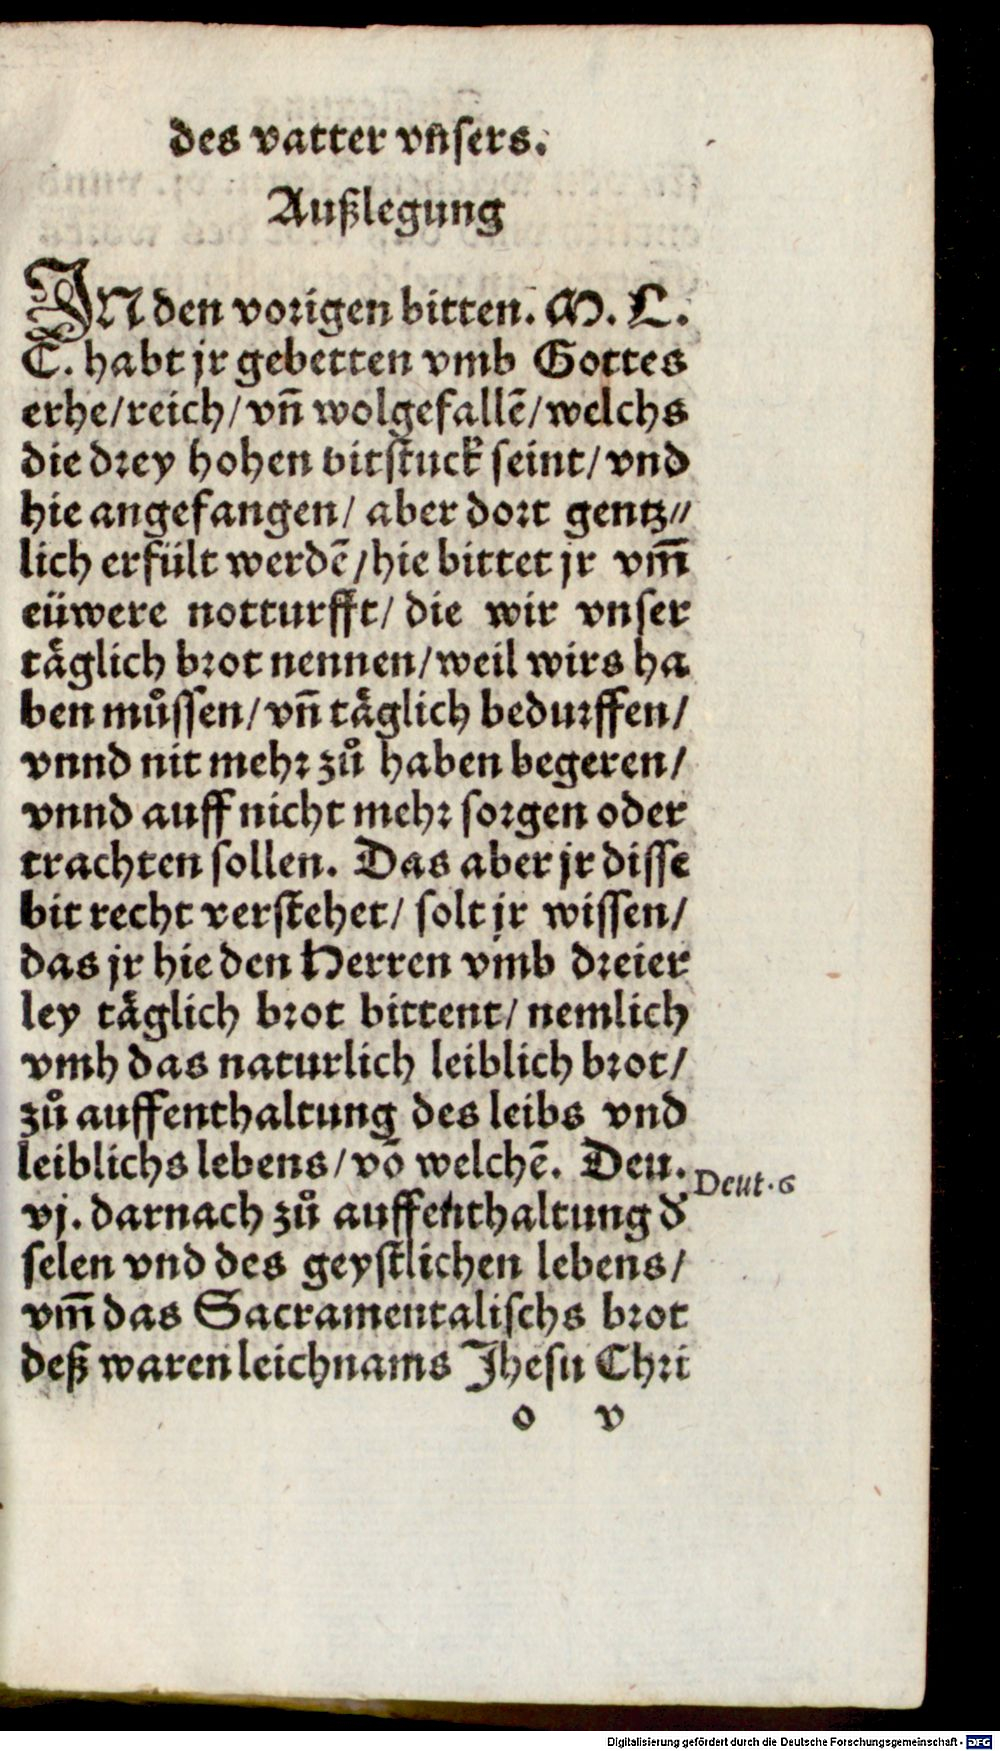 des vatter vnsers.
Außlegung
IN den vorigen bitten. M. L.
C. habt jr gebetten vmb Gottes
erhe/reich/vn̄ wolgefallē/welchs
die drey hohen bitstuck seint/vnd
hie angefangen/ aber dort gentz⸗
lich erfült werdē/hie bittet jr vm̄
eüwere notturfft/ die wir vnser
tåglich brot nennen/weil wirs ha
ben můssen/vn̄ tåglich bedurffen/
vnnd nit mehr zů haben begeren/
vnnd auff nicht mehr sorgen oder
trachten sollen. Das aber jr disse
bit recht verstehet/ solt jr wissen/
das jr hie den Herren vmb dreier
ley tåglich brot bittent/ nemlich
vmb das naturlich leiblich brot/
zů auffenthaltung des leibs vnd
leiblichs lebens/vō welchē. Deu.
Deut. 6
vj. darnach zů auffenthaltung d̕
selen vnd des geystlichen lebens/
vm̄ das Sacramentalischs brot
deß waren leichnams Jhesu Chri
o v
Digitalisierung gefördert durch die Deutsche Forschungsgemeinschaft - DFG